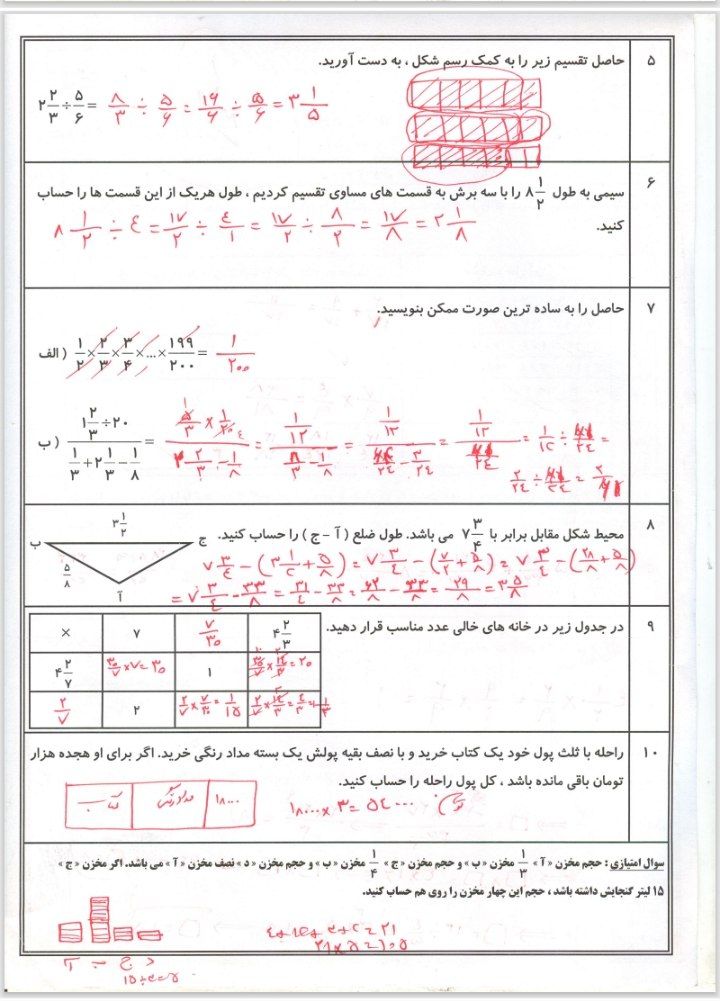 ۵
حاصل تقسیم زیر را به کمک رسم شکل ، به دست آورید.
۲ ۲/۳ ÷ ۵/۶ = ۸/۳ ÷ ۵/۶ = ۱۶/۶ ÷ ۵/۶ = ۳ ۱/۵
۶
سیمی به طول ۸ ۱/۲ را با سه برش به قسمت های مساوی تقسیم کردیم ، طول هریک از این قسمت ها را حساب
کنید.
۸ ۱/۲ ÷ ۴ = ۱۷/۲ ÷ ۴/۱ = ۱۷/۲ ÷ ۸/۲ = ۱۷/۸ = ۲ ۱/۸
۷
حاصل را به ساده ترین صورت ممکن بنویسید.
الف ) ۱/۲ × ۲/۳ × ۳/۴ × ... × ۱۹۹/۲۰۰ = ۱/۲۰۰
ب ) (۱ ۲/۳ ÷ ۲۰) / (۱/۳ + ۲ ۱/۳ - ۱/۸) =
۸
محیط شکل مقابل برابر با ۷ ۳/۴ می باشد. طول ضلع ( آ - ج ) را حساب کنید.
ب ۳ ۱/۲ ج
۵/۸ آ
۷ ۳/۴ - (۳ ۱/۲ + ۵/۸) = ۷ ۳/۴ - (۷/۲ + ۵/۸) = ۷ ۳/۴ - (۲۸/۸ + ۵/۸)
= ۷ ۳/۴ - ۳۳/۸ = ۳۱/۴ - ۳۳/۸ = ۶۲/۸ - ۳۳/۸ = ۲۹/۸ = ۳ ۵/۸
۹
در جدول زیر در خانه های خالی عدد مناسب قرار دهید.
× ۷ ۷/۳۰ ۴ ۲/۳
۴ ۲/۷ ۳۰/۷ × ۷ = ۳۰ ۱ ۳۰/۷ × ۱۴/۳ = ۲۰
۲/۷ ۲ ۲/۷ × ۷/۳۰ = ۱/۱۵ ۲/۷ × ۱۴/۳ = ۴/۳ = ۱ ۱/۳
۱۰
راحله با ثلث پول خود یک کتاب خرید و با نصف بقیه پولش یک بسته مداد رنگی خرید. اگر برای او هجده هزار
تومان باقی مانده باشد ، کل پول راحله را حساب کنید.
کتاب مدادرنگی ۱۸۰۰۰
۱۸۰۰۰ × ۳ = ۵۴۰۰۰ تومان
سوال امتیازی : حجم مخزن « آ » ۱/۳ مخزن « ب » و حجم مخزن « ج » ۱/۴ مخزن « ب » و حجم مخزن « د » نصف مخزن « آ » می باشد. اگر مخزن « ج »
۱۵ لیتر گنجایش داشته باشد ، حجم این چهار مخزن را روی هم حساب کنید.
۴+۱۲+۳+۲=۲۱
۲۱×۵=۱۰۵
آ ب ج د
۱۵÷۳=۵